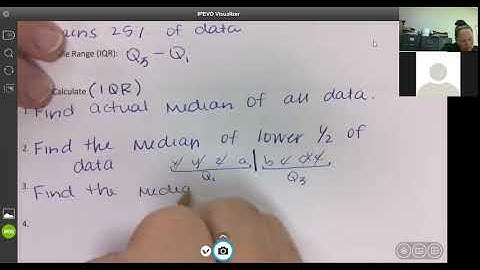 IPEVO Visualizer
ains 25% of data
le Range (IQR): Q3 - Q1
Calculate (IQR)
1. Find actual median of all data.
2. Find the median of lower 1/2 of
data
Q1 Q3
3. Find the media
4.